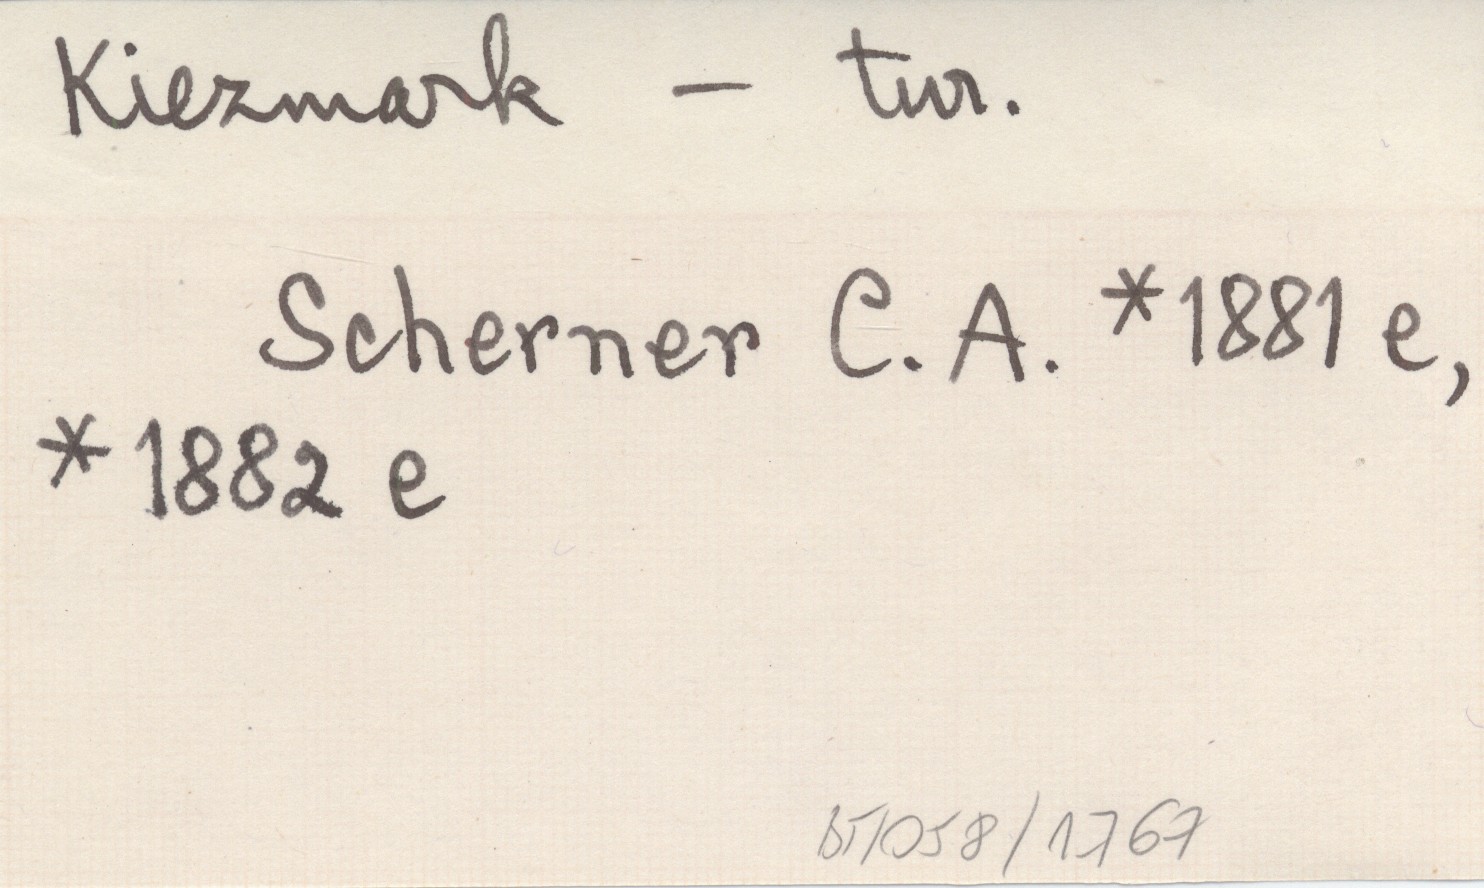 Kiezmark – tur.
Scherner C. A. *1881 e,
*1882 e
BT/058/1767